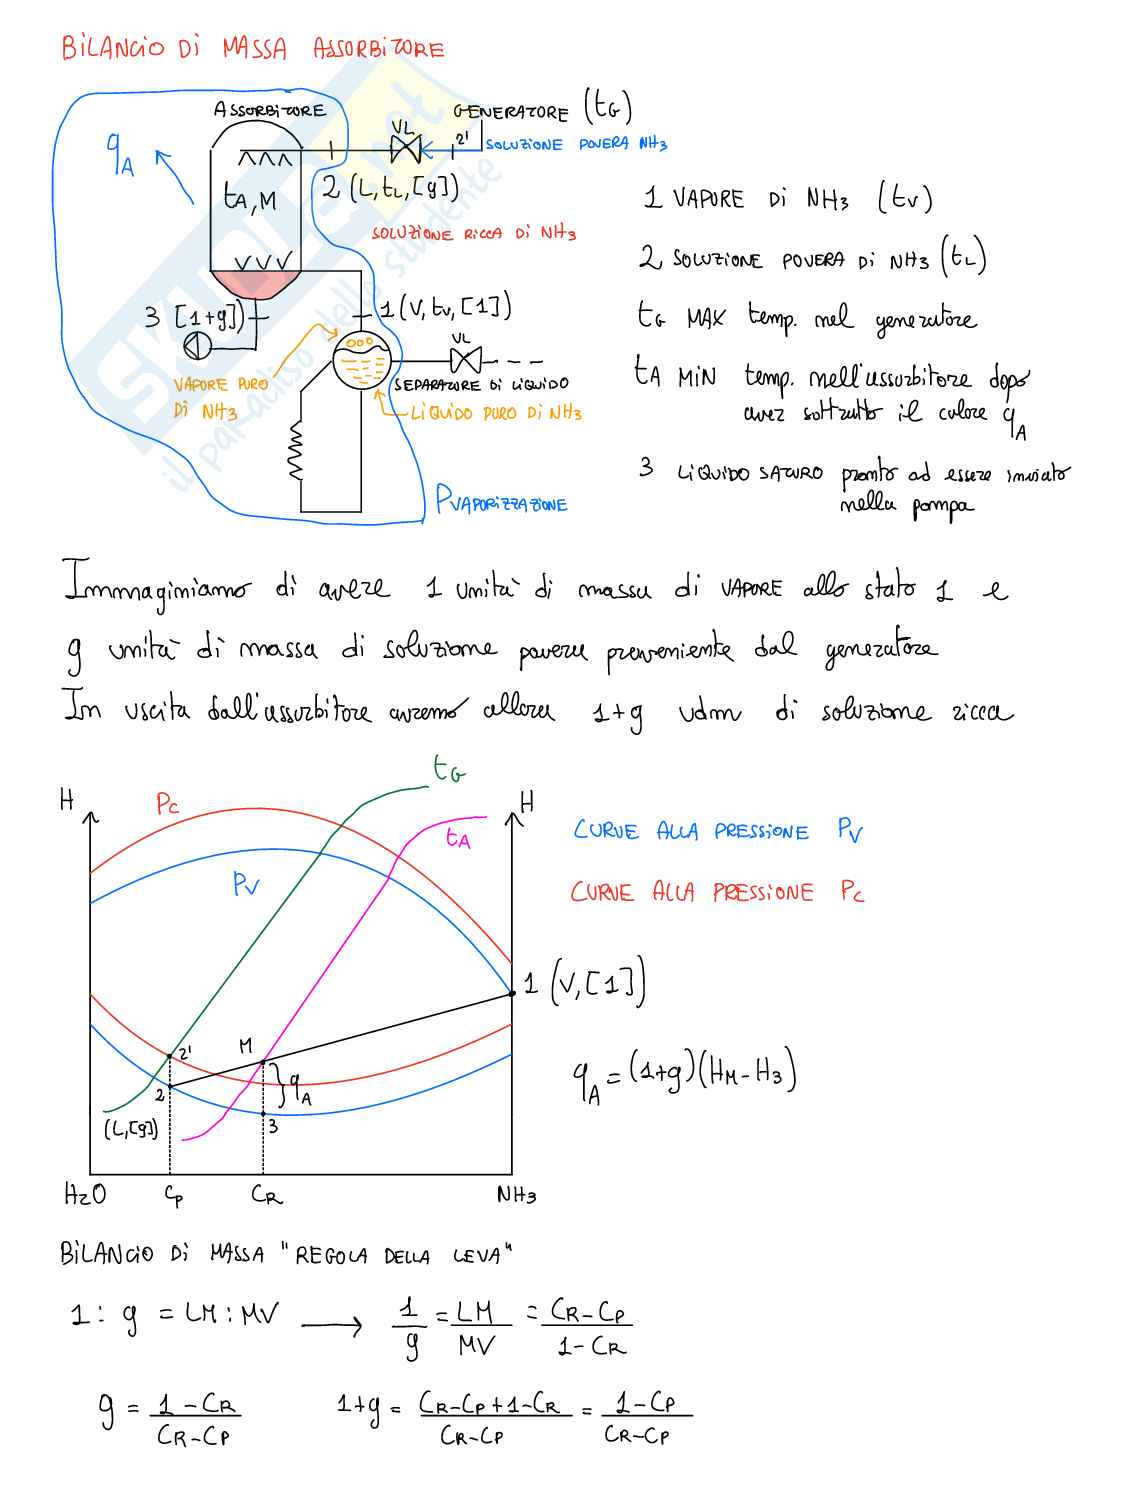 BILANCIO DI MASSA ASSORBITORE
ASSORBITORE
GENERATORE (tG)
qA
VL
2'
SOLUZIONE POVERA NH3
tA, M
2 (L, tL, [g])
SOLUZIONE RICCA DI NH3
3 [1+g]
1 (V, tv, [1])
VL
VAPORE PURO
DI NH3
SEPARATORE DI LIQUIDO
LIQUIDO PURO DI NH3
PVAPORIZZAZIONE
1 VAPORE DI NH3 (tv)
2 SOLUZIONE POVERA DI NH3 (tL)
tG MAX temp. nel generatore
tA MIN temp. nell'assorbitore dopo
aver sottratto il calore qA
3 LIQUIDO SATURO pronto ad essere inviato
nella pompa
SKUOLA.net
il paradiso dello studente
Immaginiamo di avere 1 unità di massa di VAPORE allo stato 1 e
g unità di massa di soluzione povera proveniente dal generatore
In uscita dall'assorbitore avremo allora 1+g udm di soluzione ricca
H
Pc
tG
H
tA
Pv
CURVE ALLA PRESSIONE Pv
CURVE ALLA PRESSIONE Pc
1 (V,[1])
2'
M
2
qA
3
(L,[g])
qA = (1+g)(HM - H3)
H2O
CP
CR
NH3
BILANCIO DI MASSA "REGOLA DELLA LEVA"
1 : g = LM : MV → 1/g = LM/MV = CR-CP/1-CR
g = 1-CR/CR-CP 1+g = CR-CP+1-CR/CR-CP = 1-CP/CR-CP